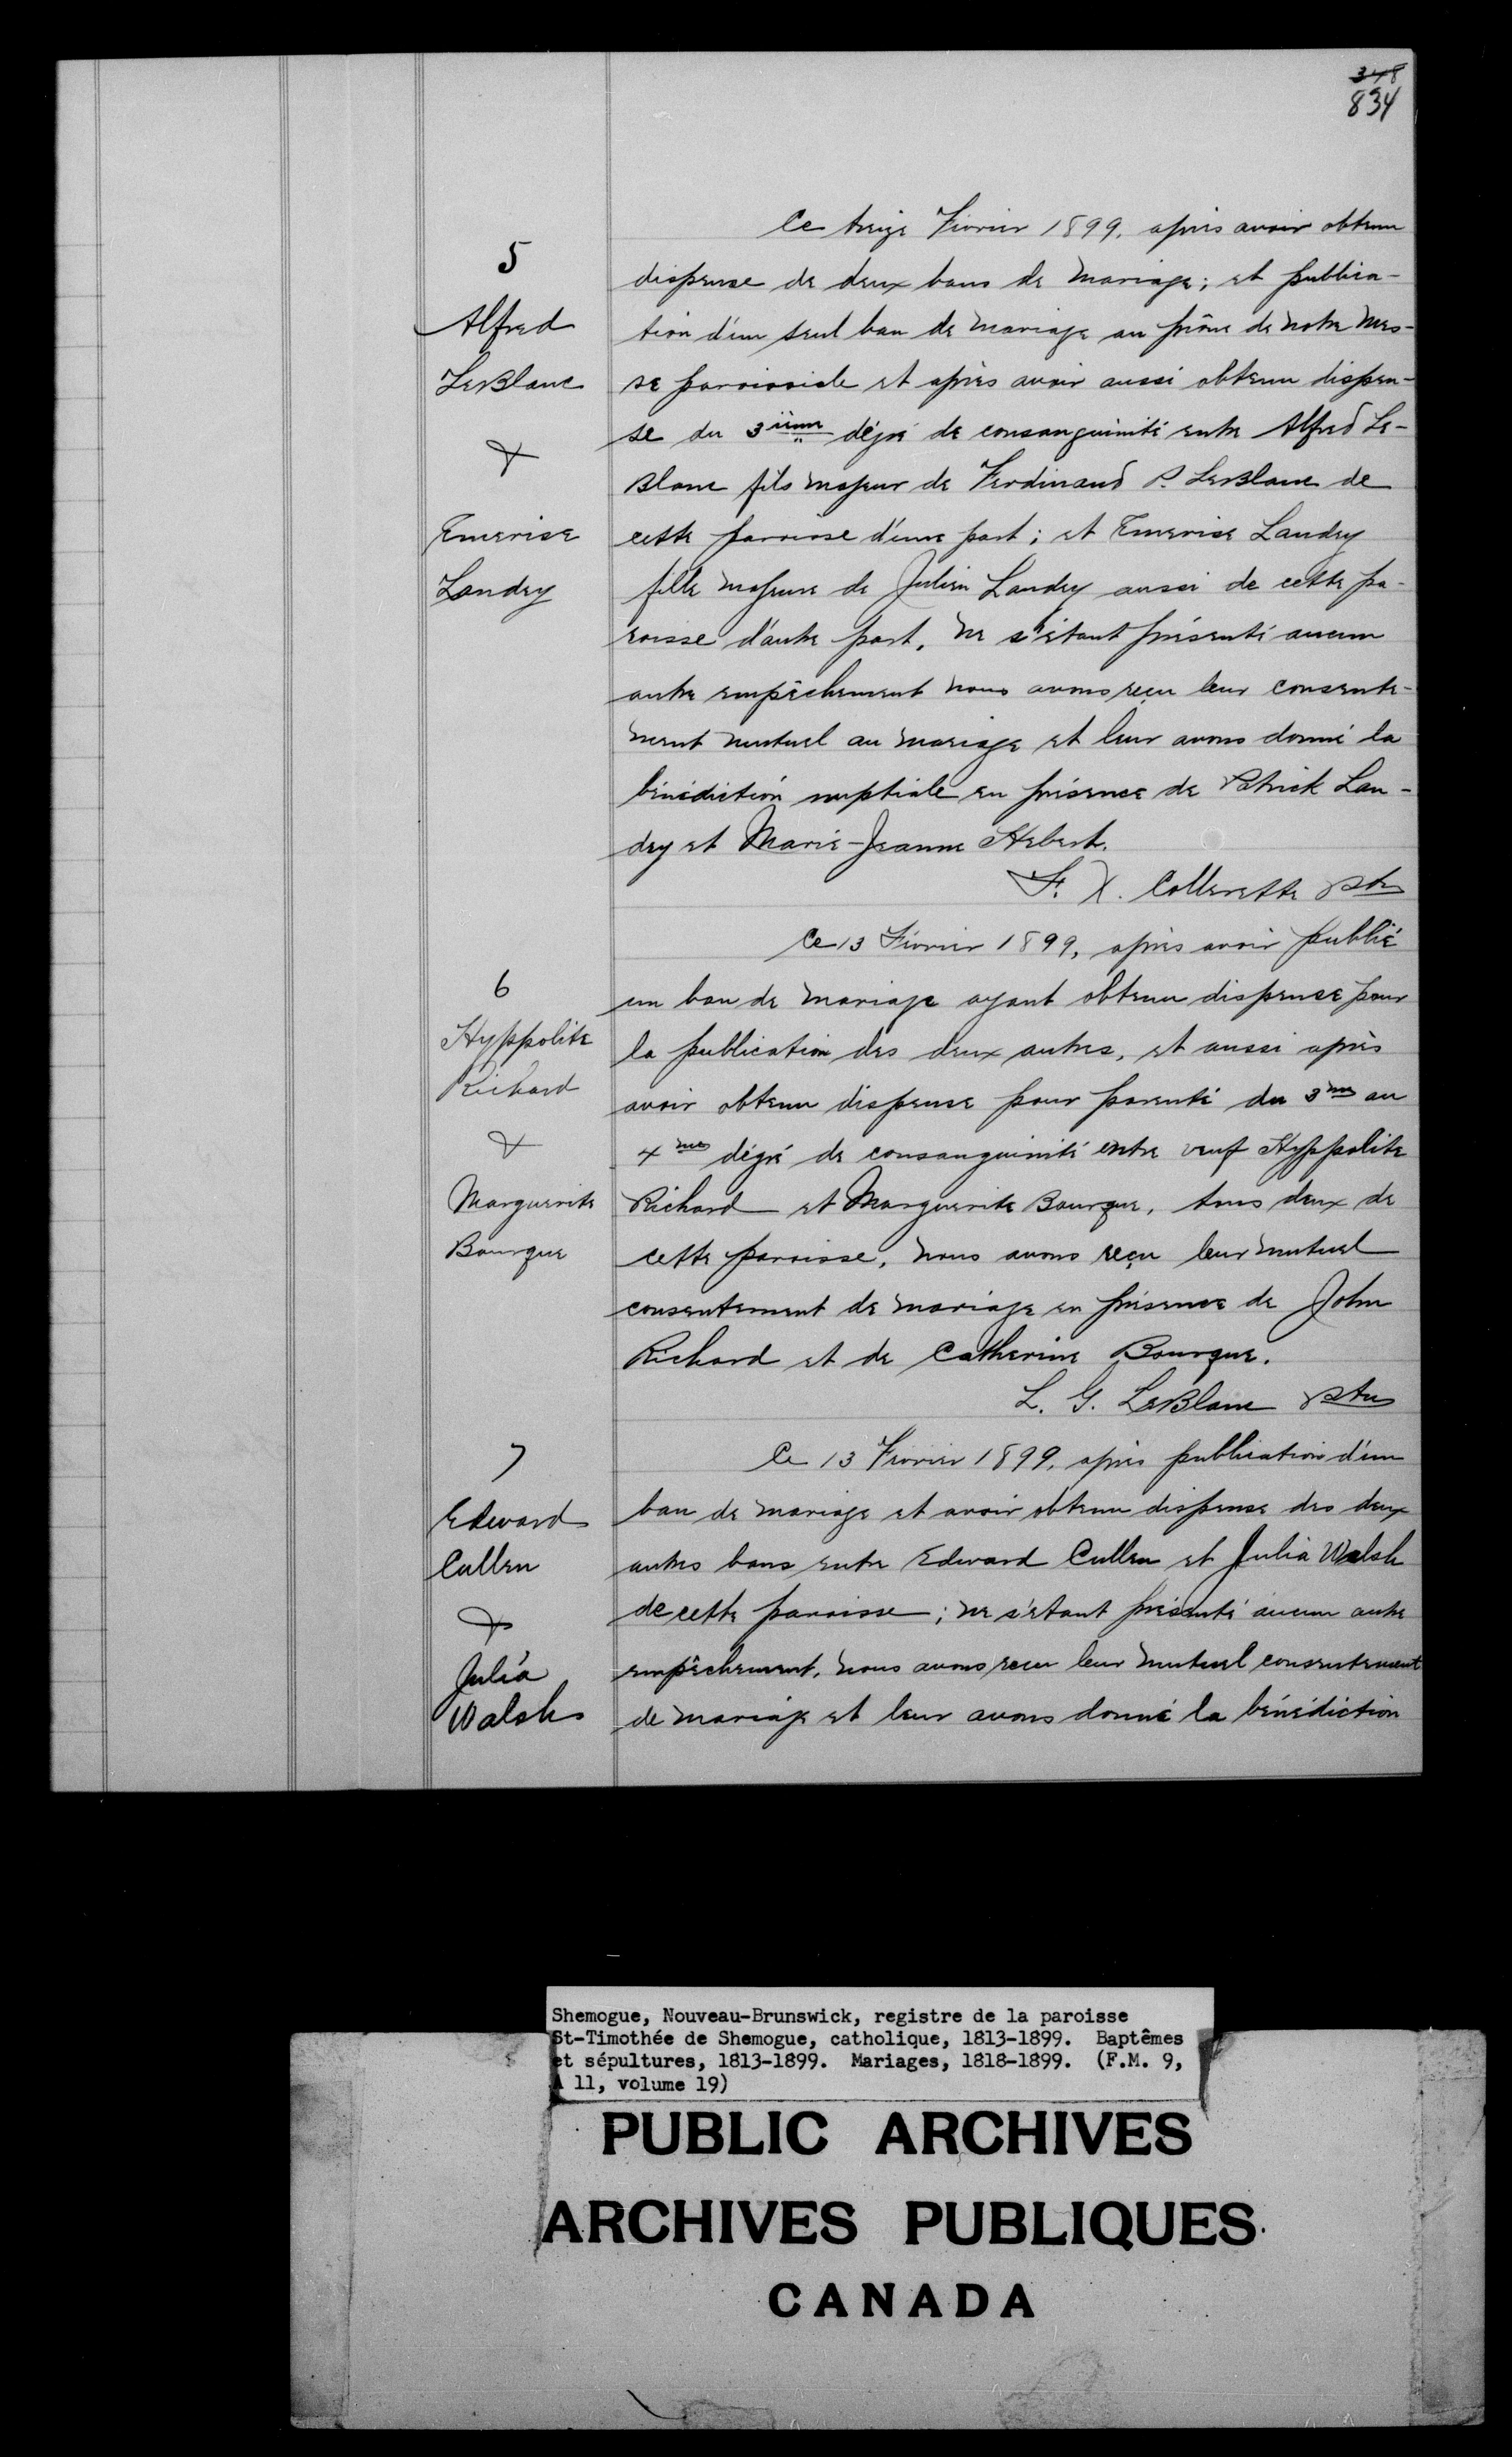 348
834
5
Alfred
LeBlanc
&
Emerise
Landry
Ce treize Février 1899, après avoir obtenu
dispense de deux bans de mariage; et publica-
tion d'un seul ban de mariage au prône de notre mes-
se paroissiale et après avoir aussi obtenu dispen-
se du 3ième dégré de consanguinité entre Alfred Le-
Blanc fils majeur de Ferdinand P. LeBlanc de
cette paroisse d'une part; et Emerise Landry
fille majeure de Julien Landry aussi de cette pa-
roisse d'autre part, ne s'étant présenté aucun
autre empêchement nous avons reçu leur consente-
ment mutuel au mariage et leur avons donné la
bénédiction nuptiale en présence de Patrick Lan-
dry et Marie-Jeanne Hebert.
F. X. Collerette ptre
6
Hyppolite
Richard
&
Marguerite
Bourque
Ce 13 Février 1899, après avoir publié
un ban de mariage ayant obtenu dispense pour
la publication des deux autres, et aussi après
avoir obtenu dispense pour parenté du 3me au
4me dégré de consanguinité entre veuf Hyppolite
Richard et Marguerite Bourque, tous deux de
cette paroisse, nous avons reçu leur mutuel
consentement de mariage en présence de John
Richard et de Catherine Bourque.
L. G. LeBlanc ptre
7
Edward
Cullen
&
Julia
Walsh
Ce 13 Février 1899, après publication d'un
ban de mariage et avoir obtenu dispense des deux
autres bans entre Edward Cullen et Julia Walsh
de cette paroisse; ne s'étant présenté aucun autre
empêchement, nous avons reçu leur mutuel consentement
de mariage et leur avons donné la bénédiction
Shemogue, Nouveau-Brunswick, registre de la paroisse
St-Timothée de Shemogue, catholique, 1813-1899. Baptêmes
et sépultures, 1813-1899. Mariages, 1818-1899. (F.M. 9,
A 11, volume 19)
PUBLIC ARCHIVES
ARCHIVES PUBLIQUES
CANADA